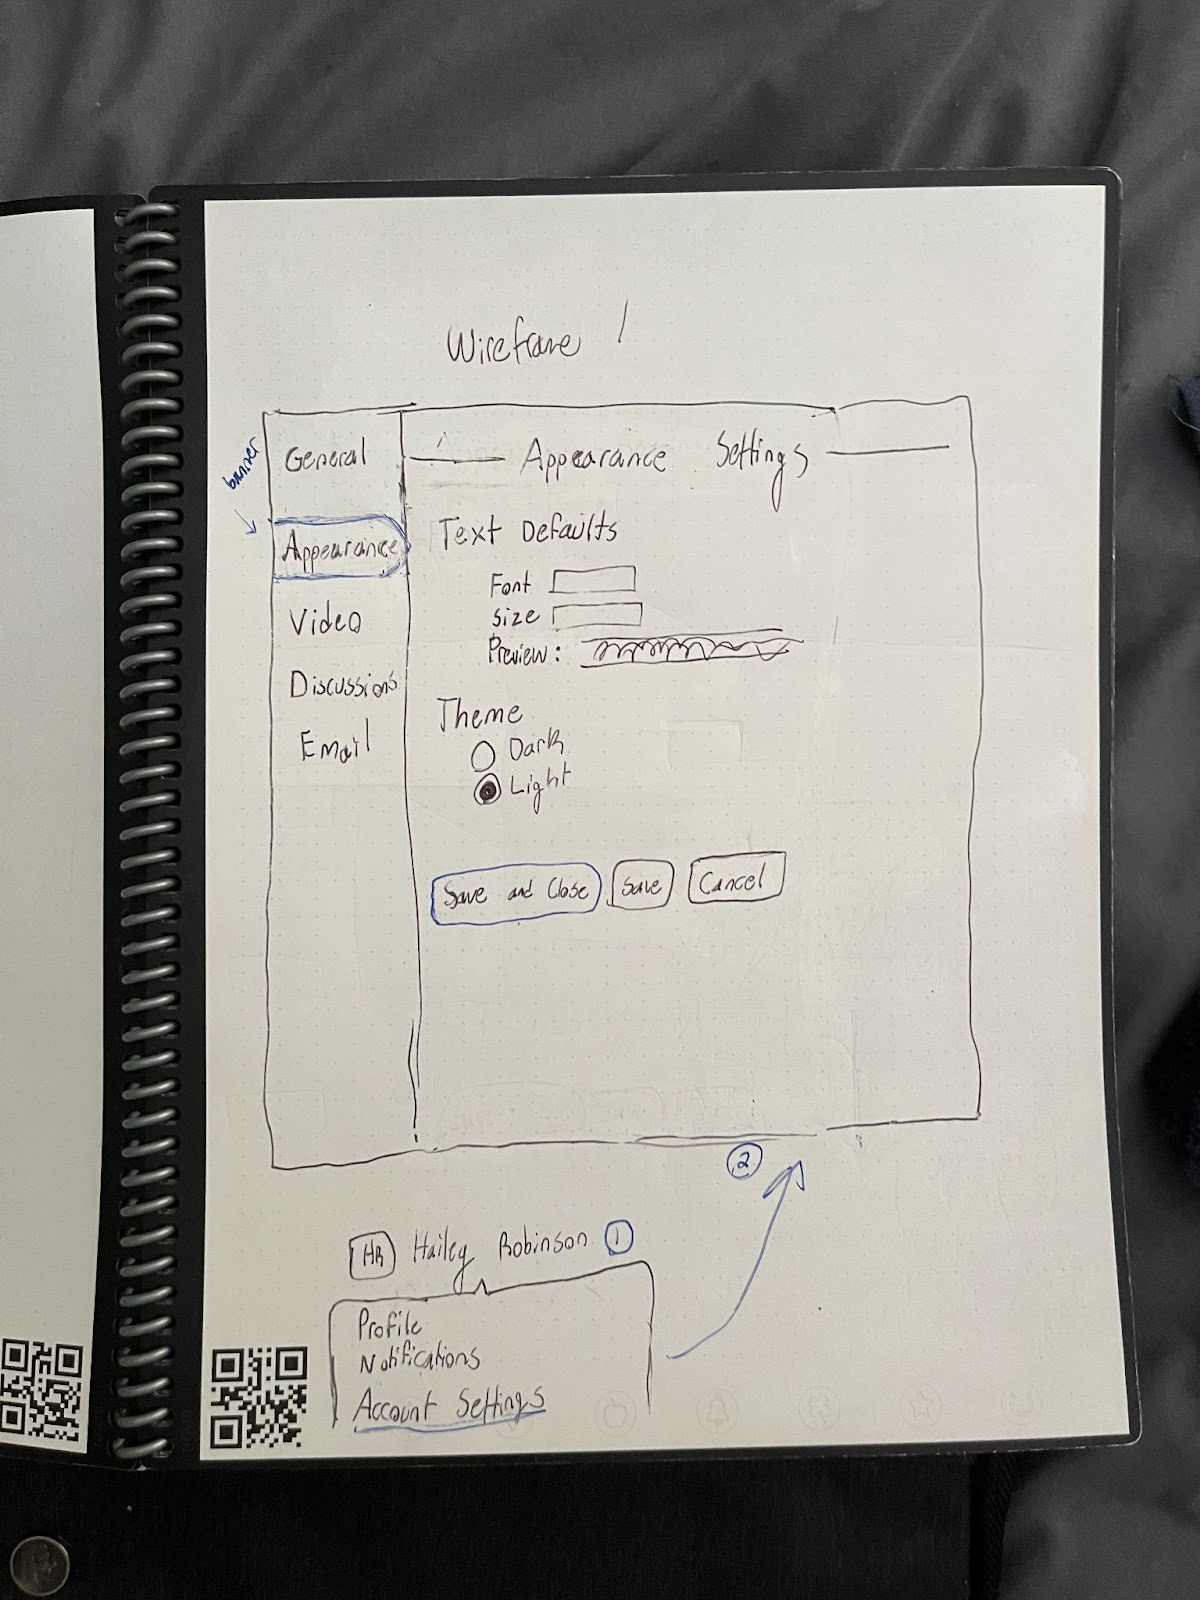 Wireframe 1
banner
General
Appearance
Video
Discussions
Email
Appearance Settings
Text Defaults
Font
Size
Preview:
Theme
Dark
Light
Save and Close
Save
Cancel
2
HR Hailey Robinson 1
Profile
Notifications
Account Settings